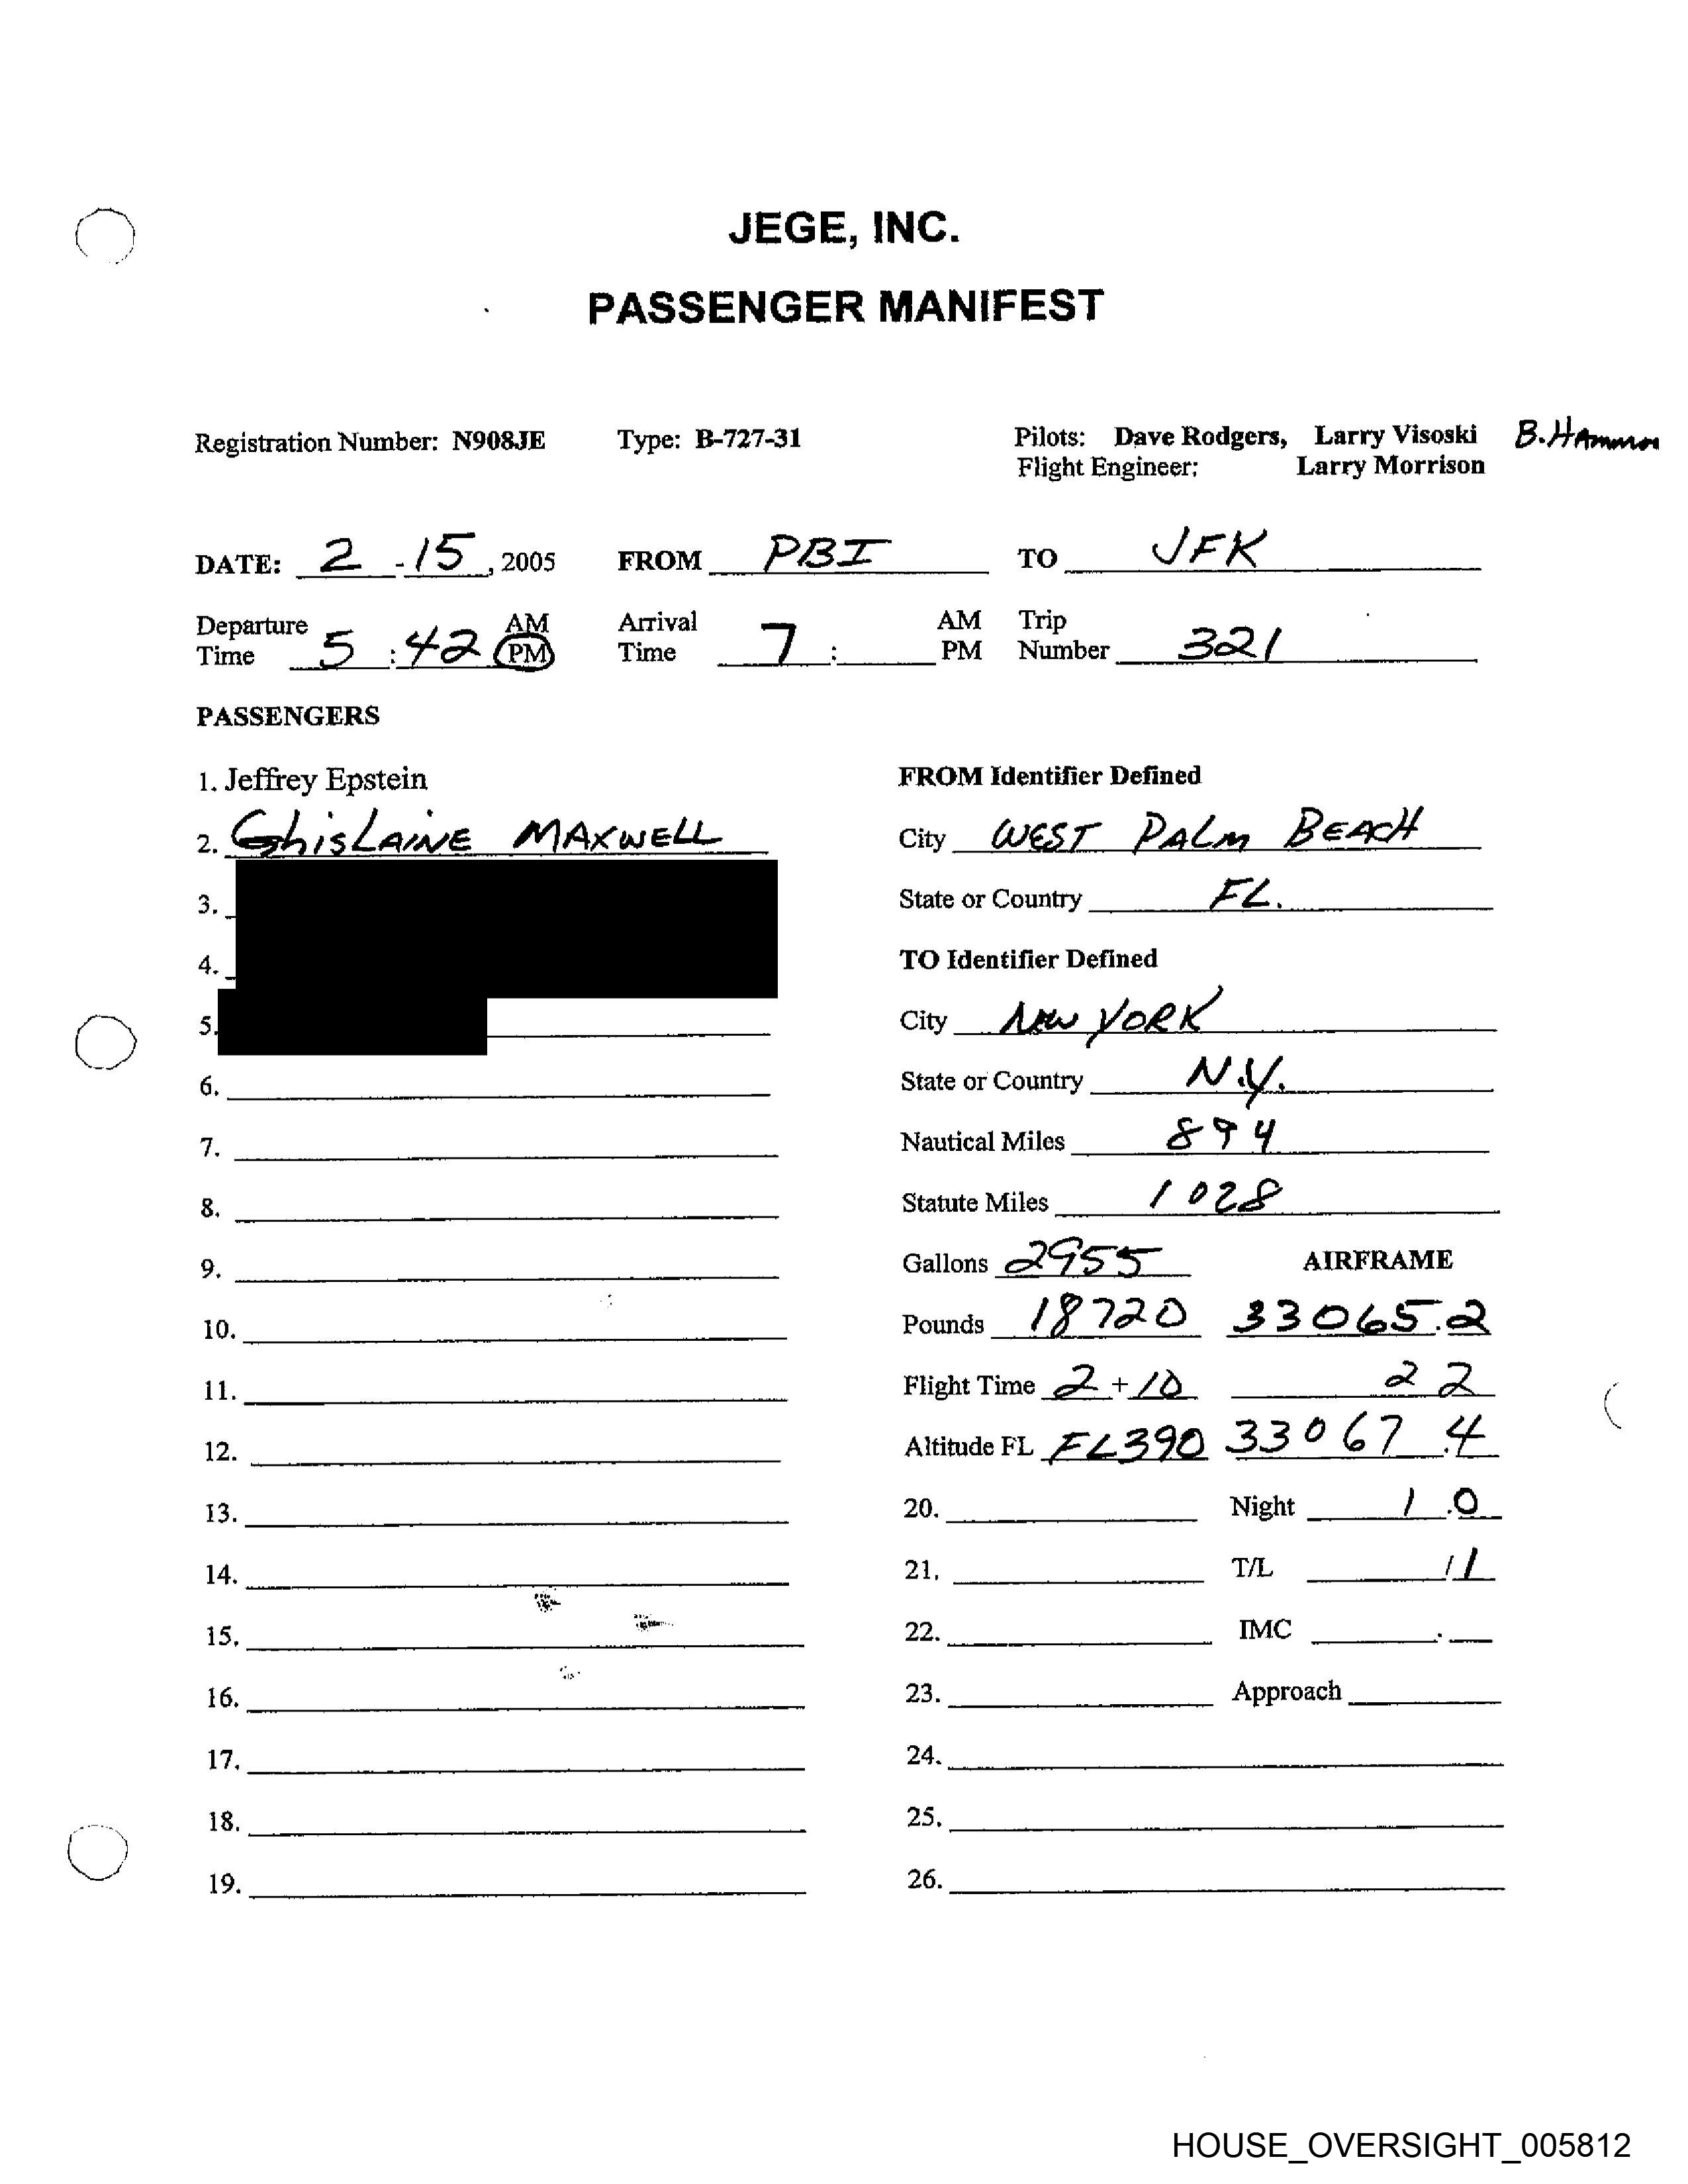 JEGE, INC.
PASSENGER MANIFEST
Registration Number: N908JE Type: B-727-31 Pilots: Dave Rodgers, Larry Visoski B. HAmmon
Flight Engineer: Larry Morrison
DATE: 2 - 15, 2005 FROM PBI TO JFK
Departure Time 5:42 AM PM Arrival Time 7 : AM PM Trip Number 321
PASSENGERS
1. Jeffrey Epstein
2. GhisLAINE MAXWELL
3.
4.
5.
6.
7.
8.
9.
10.
11.
12.
13.
14.
15.
16.
17.
18.
19.
FROM Identifier Defined
City WEST PALM BEACH
State or Country FL.
TO Identifier Defined
City NEW YORK
State or Country N.Y.
Nautical Miles 894
Statute Miles 1028
Gallons 2955 AIRFRAME
Pounds 18720 33065.2
Flight Time 2 + 10 2 2
Altitude FL FL390 33067.4
20. Night 1.0
21. T/L 1/1
22. IMC .
23. Approach
24.
25.
26.
HOUSE_OVERSIGHT_005812